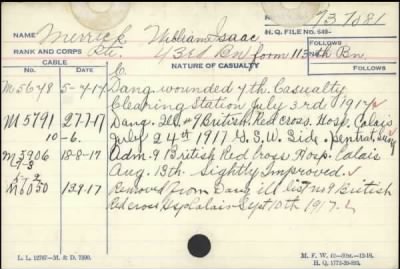 737081
H.Q. FILE No. 649-
NAME Merrick William Isaac
FOLLOWS
RANK AND CORPS Pte. 43rd Bn form 113th Bn. FOLLOWS
CABLE NATURE OF CASUALTY
No. DATE
M5648 5-7-17 Dang wounded 47th Casualty
Clearing Station July 3rd 1917
M5791 27-7-17 Dang. Ill #9 British Red Cross. Hosp. Calais
10-6. July 24th 1917 G.S.W. Side. Penetrat. Lung
M5906 18-8-17 Adm. 9 British Red Cross Hosp. Calais
Aug. 13th. Slightly Improved.
M6050 13-9-17 Removed from Dang ill list no 9 British
Red Cross Hsp Calais Sept 10th 1917.
L. L. 12767-M. & D. 7200.
M. F. W. 42-50M.-12-16.
H. Q. 1772-39-893.